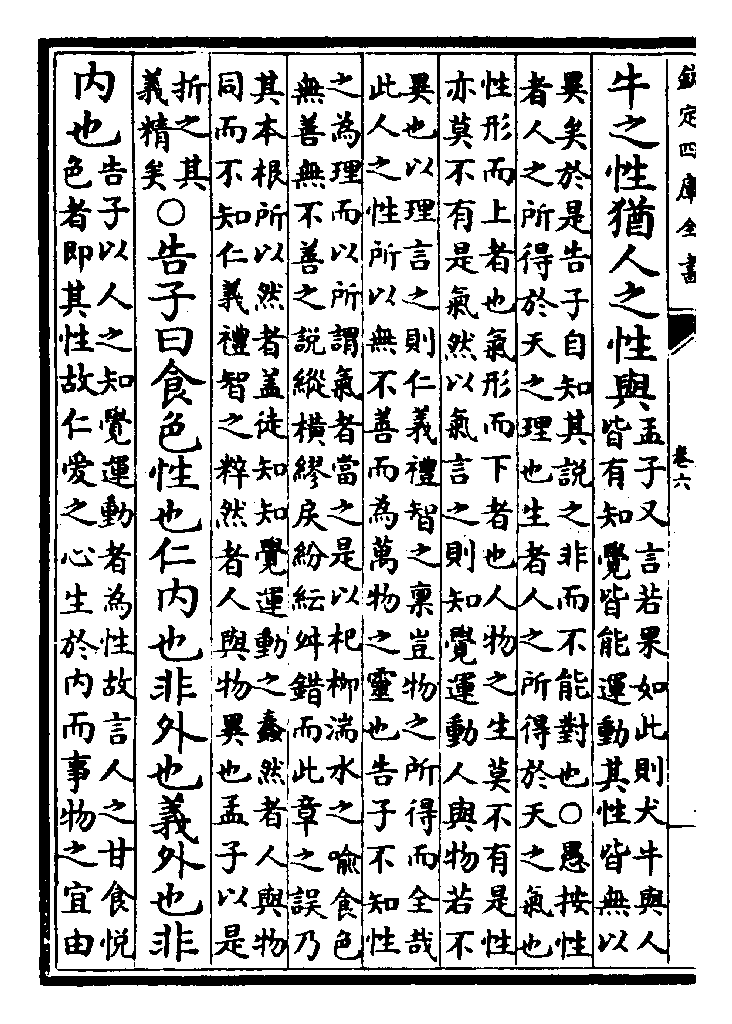 欽定四庫全書
卷六
牛之性猶人之性與
孟子又言若果如此則犬牛與人
皆有知覺皆能運動其性皆無以
異矣於是告子自知其說之非而不能對也〇愚按性
者人之所得於天之理也生者人之所得於天之氣也
性形而上者也氣形而下者也人物之生莫不有是性
亦莫不有是氣然以氣言之則知覺運動人與物若不
異也以理言之則仁義禮智之稟豈物之所得而全哉
此人之性所以無不善而為萬物之靈也告子不知性
之為理而以所謂氣者當之是以杞柳湍水之喻食色
無善無不善之說縱橫繆戾紛紜舛錯而此章之誤乃
其本根所以然者蓋徒知知覺運動之蠢然者人與物
同而不知仁義禮智之粹然者人與物異也孟子以是
折之其
義精矣
〇告子曰食色性也仁內也非外也義外也非
內也
告子以人之知覺運動者為性故言人之甘食悅
色者即其性故仁愛之心生於內而事物之宜由